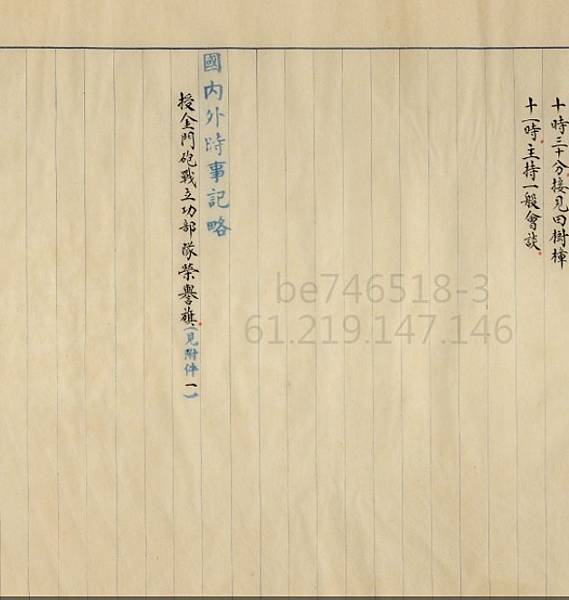 十時三十分接見田樹樟
十一時主持一般會談
國內外時事記略
授金門砲戰立功部隊榮譽旗(見附件一)
be746518-3
61.219.147.146